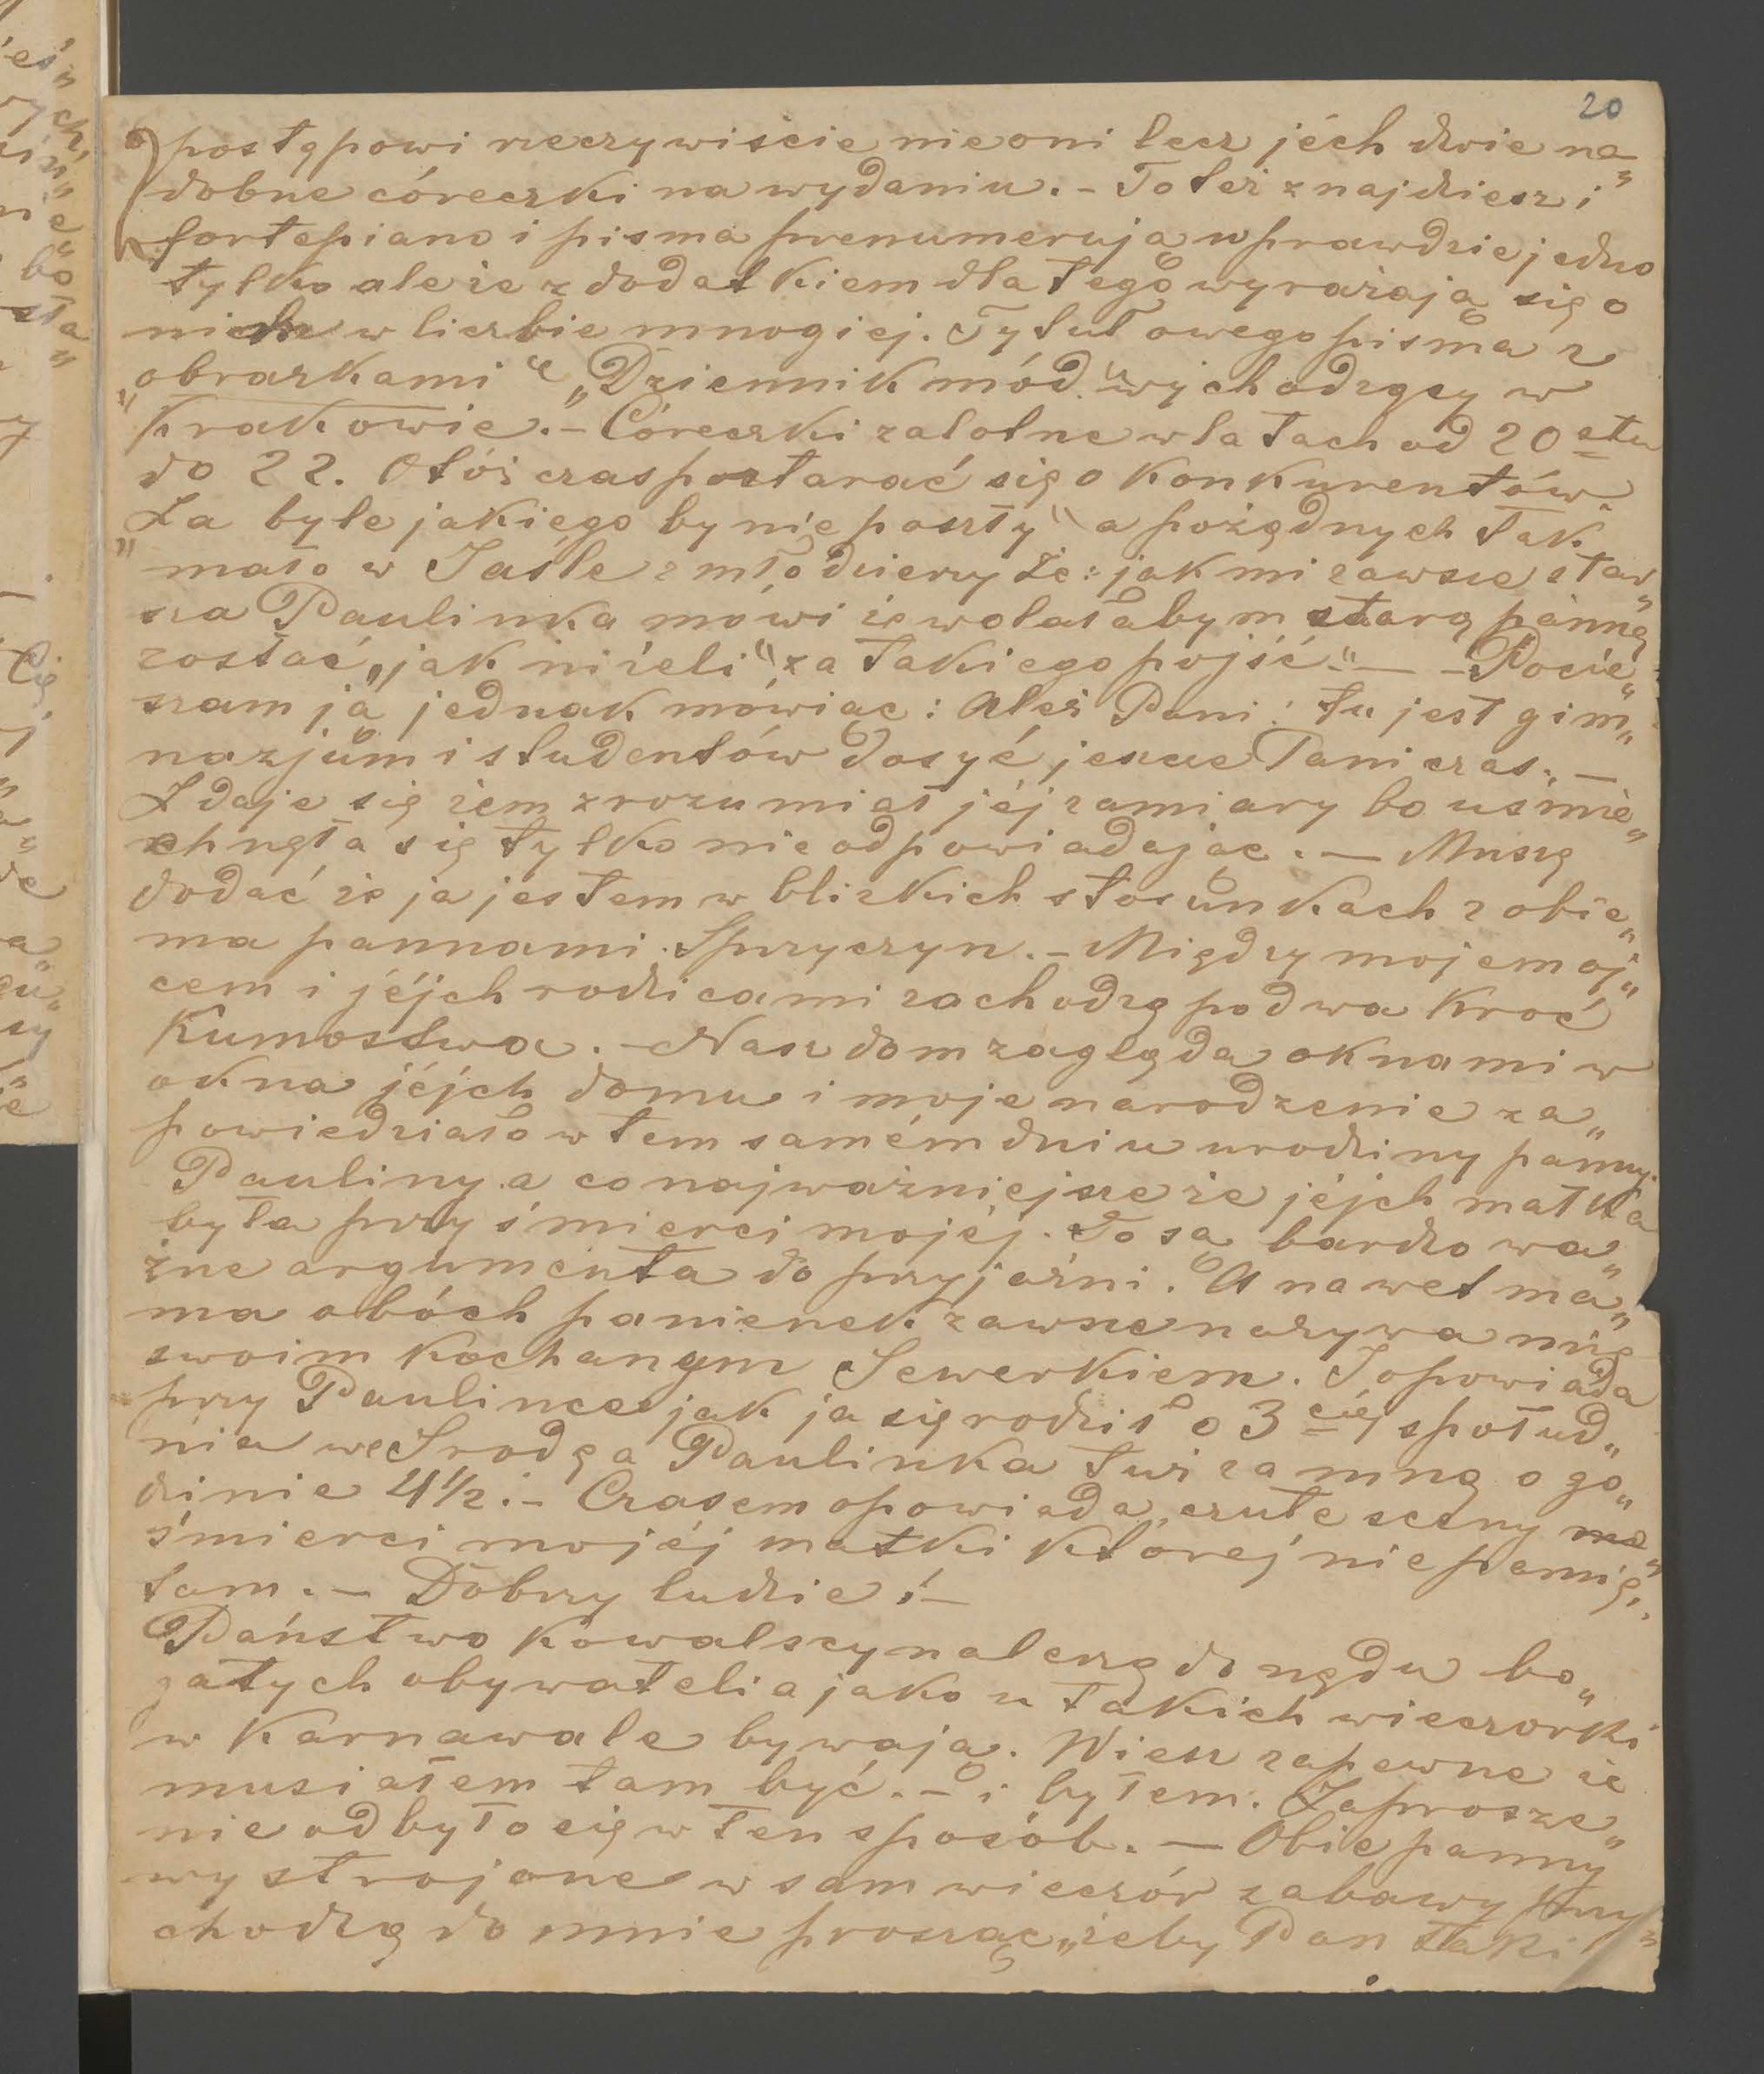 20
postępowi rzeczywiście nie oni lecz jéch dwie na„
dobne córeczki na wydaniu. – To też znajdziesz i
fortepiano i pisma prenumerują wprawdzie jedno
tylko ale że z dodatkiem dla tego wyrażają się o
nich w liczbie mnogiej. Tytuł owego pisma z
„obrazkami“ „Dziennik mód“ wychodzący w
Krakowie. – Córeczki zalotne w latach od 20stu
do 22. Otóż czas postarać się o konkurentów.
„Za byle jakiego by nie poszły“ a pożądnych tak
mało w Jaśle z młodzierzy że: jak mi zawsze star„
sza Paulinka mówi że wolałabym starą panną
zostać „jak niżeli“ za takiego pojść.“ — – Pocie„
szam ją jednak mówiąc: Ależ Pani! tu jest gim„
nazjum i studentów dosyć jeszcze Pani czas. —
Zdaje się żem zrozumiał jéj zamiary bo uśmie„
chnęła się tylko nie odpowiadając. — Muszę
dodać że ja jestem w blizkich stosunkach z obie„
ma pannami. Z przyczyn. – Między mojem oj„
cem i jéjch rodzicami zachodzą podwa kroć
Kumostwa. – Nasz dom zagląda oknami w
okna jéjch domu i moje narodzenie za„
powiedziało w tem samém dniu urodziny panny
Pauliny a co najważniejsze że jéjch matka
była przy śmierci mojéj. To są bardzo wa„
żne argumenta do przyjaźni. A nawet ma„
ma obóch panienek zawsze nazywa mię
swoim kochanym Sewerkiem. I opowiada
przy Paulince jak ja się rodził o 3ciéj społud„
nia we Srodę a Paulinka tuż za mną o go„
dzinie 4½. – Czasem opowiada czułe sceny
śmierci mojéj matki której nie pamię„
tam. – Dobrzy ludzie! –
Państwo Kowalscy należą do rzędu bo„
gatych obywateli a jako u takich wieczorki
w karnawale bywają. Wiesz zapewne że
musiałem tam być. – i byłem. Zaprosze„
nie odbyło się w ten sposób. — Obie panny
wystrojone w sam wieczór zabawy przy„
chodzą do mnie prosząc „żeby Pan taki